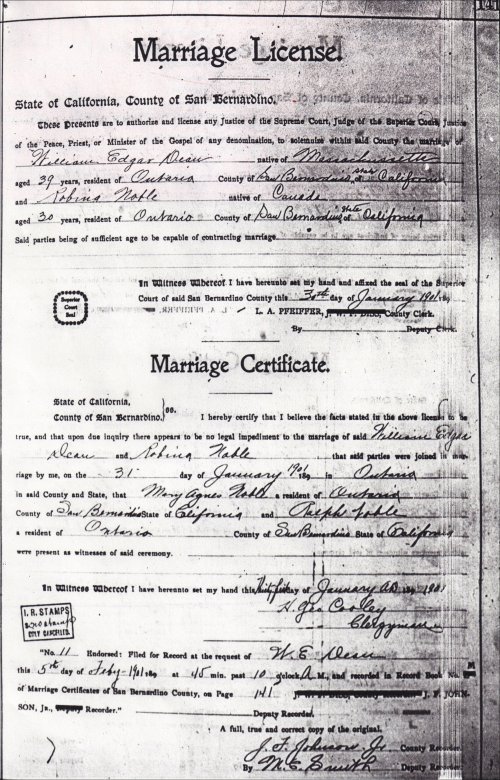 141
Marriage License.
State of California, County of San Bernardino.
These Presents are to authorize and license any Justice of the Supreme Court, Judge of the Superior Court, Justice
of the Peace, Priest, or Minister of the Gospel of any denomination, to solemnize within said County the marriage of
William Edgar Dean native of Massachusetts
aged 39 years, resident of Ontario County of San Bernardino State of California
and Robina Noble native of Canada
aged 30 years, resident of Ontario County of San Bernardino State of California
Said parties being of sufficient age to be capable of contracting marriage.
In Witness Whereof I have hereunto set my hand and affixed the seal of the Superior
Superior Court Seal
Court of said San Bernardino County this 30th day of January 1901 189
L. A. PFEIFFER, County Clerk.
By Deputy Clerk.
Marriage Certificate.
State of California,
County of San Bernardino. } ss. I hereby certify that I believe the facts stated in the above license to be
true, and that upon due inquiry there appears to be no legal impediment to the marriage of said William Edgar
Dean and Robina Noble that said parties were joined in mar-
riage by me, on the 31 day of January 1901 189 in Ontario
in said County and State, that Mary Agnes Noble a resident of Ontario
County of San Bernardino State of California and Ralph Noble
a resident of Ontario County of San Bernardino State of California
were present as witnesses of said ceremony.
In Witness Whereof I have hereunto set my hand this day of January A.D. 189 1901
H. Geo Cooley
Clergyman
I. R. STAMPS
CANCELED.
"No. 11 Endorsed: Filed for Record at the request of W. E. Dean
this 5th day of Feby 1901 189 at 45 min. past 10 o'clock A. M., and recorded in Record Book No. M
of Marriage Certificates of San Bernardino County, on Page 141 J. F. JOHN-
SON, Jr., Recorder." Deputy Recorder.
A full, true and correct copy of the original.
J. F. Johnson Jr County Recorder.
By M. E. Smith Deputy Recorder.